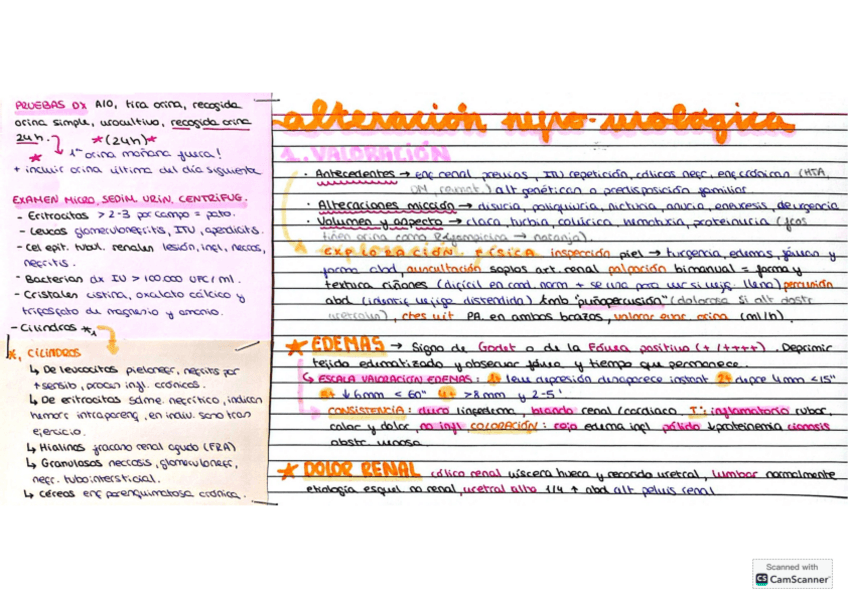 PRUEBAS DX A/O, tira orina, recogida
orina simple, urocultivo, recogida orina
24h. *(24h)*
* 1ª orina mañana fuera!
+ incluir orina última del día siguiente
EXAMEN MICRO, SEDIM. URIN, CENTRIFUG.
- Eritrocitos > 2-3 por campo = pato.
- Leucos glomerulonefritis, ITU, apendicitis.
- Cel epit. tubul. renales lesión, infl, necros,
nefritis.
- Bacterias dx IU > 100.000 UFC/ml.
- Cristales cistina, oxalato cálcico y
trifosfato de magnesio y amonio.
- Cilindros *1
*1 CILINDROS
↳ De leucocitos pielonefr, nefritis por
+ sensib, procan infl. crónicos.
↳ De eritrocitos sdme. nefrítico, indican
hemorr intraparenq, en indiv. sano tras
ejercicio.
↳ Hialinos fracaso renal agudo (FRA)
↳ Granulosos necrosis, glomerulonefr,
nefr. tubointersticial.
↳ Céreos enf parenquimatosa crónica.
alteración nefro-urológica
1. VALORACIÓN
· Antecedentes → enf renal previas, ITU repetición, cólicos nefr, enf crónicas (HTA,
DM, reumat.) alt genéticas o predisposición familiar.
· Alteraciones micción → disuria, poliquiuria, nicturia, anuria, enuresis, de urgencia
· Volumen y aspecto → clara, turbia, colúrica, hematuria, proteinuria (fcos
tiñen orina como Rifampicina → naranja).
EXPLORACIÓN FÍSICA inspección piel → turgencia, edemas, fóvea y
forma abd, auscultación soplos art. renal palpación bimanual = forma y
textura riñones (difícil en cond. norm + se usa para ver si vejig. llena) percusión
abd (identif vejiga distendida) tmb "puñopercusión" (dolorosa si alt dostr
ureteral), ctes vit PA. en ambos brazos, valorar evac orina (ml/h).
* EDEMAS → Signo de Godet o de la Fóvea positivo (+ / ++++). Deprimir
tejido edematizado y observar fóvea y tiempo que permanece.
↳ ESCALA VALORACIÓN EDEMAS: 1+ leve depresión desaparece instant 2+ depre 4mm <15"
3+ ↓ 6mm < 60" 4+ >8mm y 2-5'
CONSISTENCIA: duro linfedema, blando renal/cardiaco. Tª: inflamatorio rubor,
calor y dolor, no infl. COLORACIÓN: rojo edema infl pálido ↓proteinemia cianosis
obstr. venosa.
* DOLOR RENAL cólico renal víscera hueca y recorrido uretral, lumbar normalmente
etiología esquel. no renal, uretral alto 1/4 ↑ abd alt pelvis renal
Scanned with
CS CamScanner